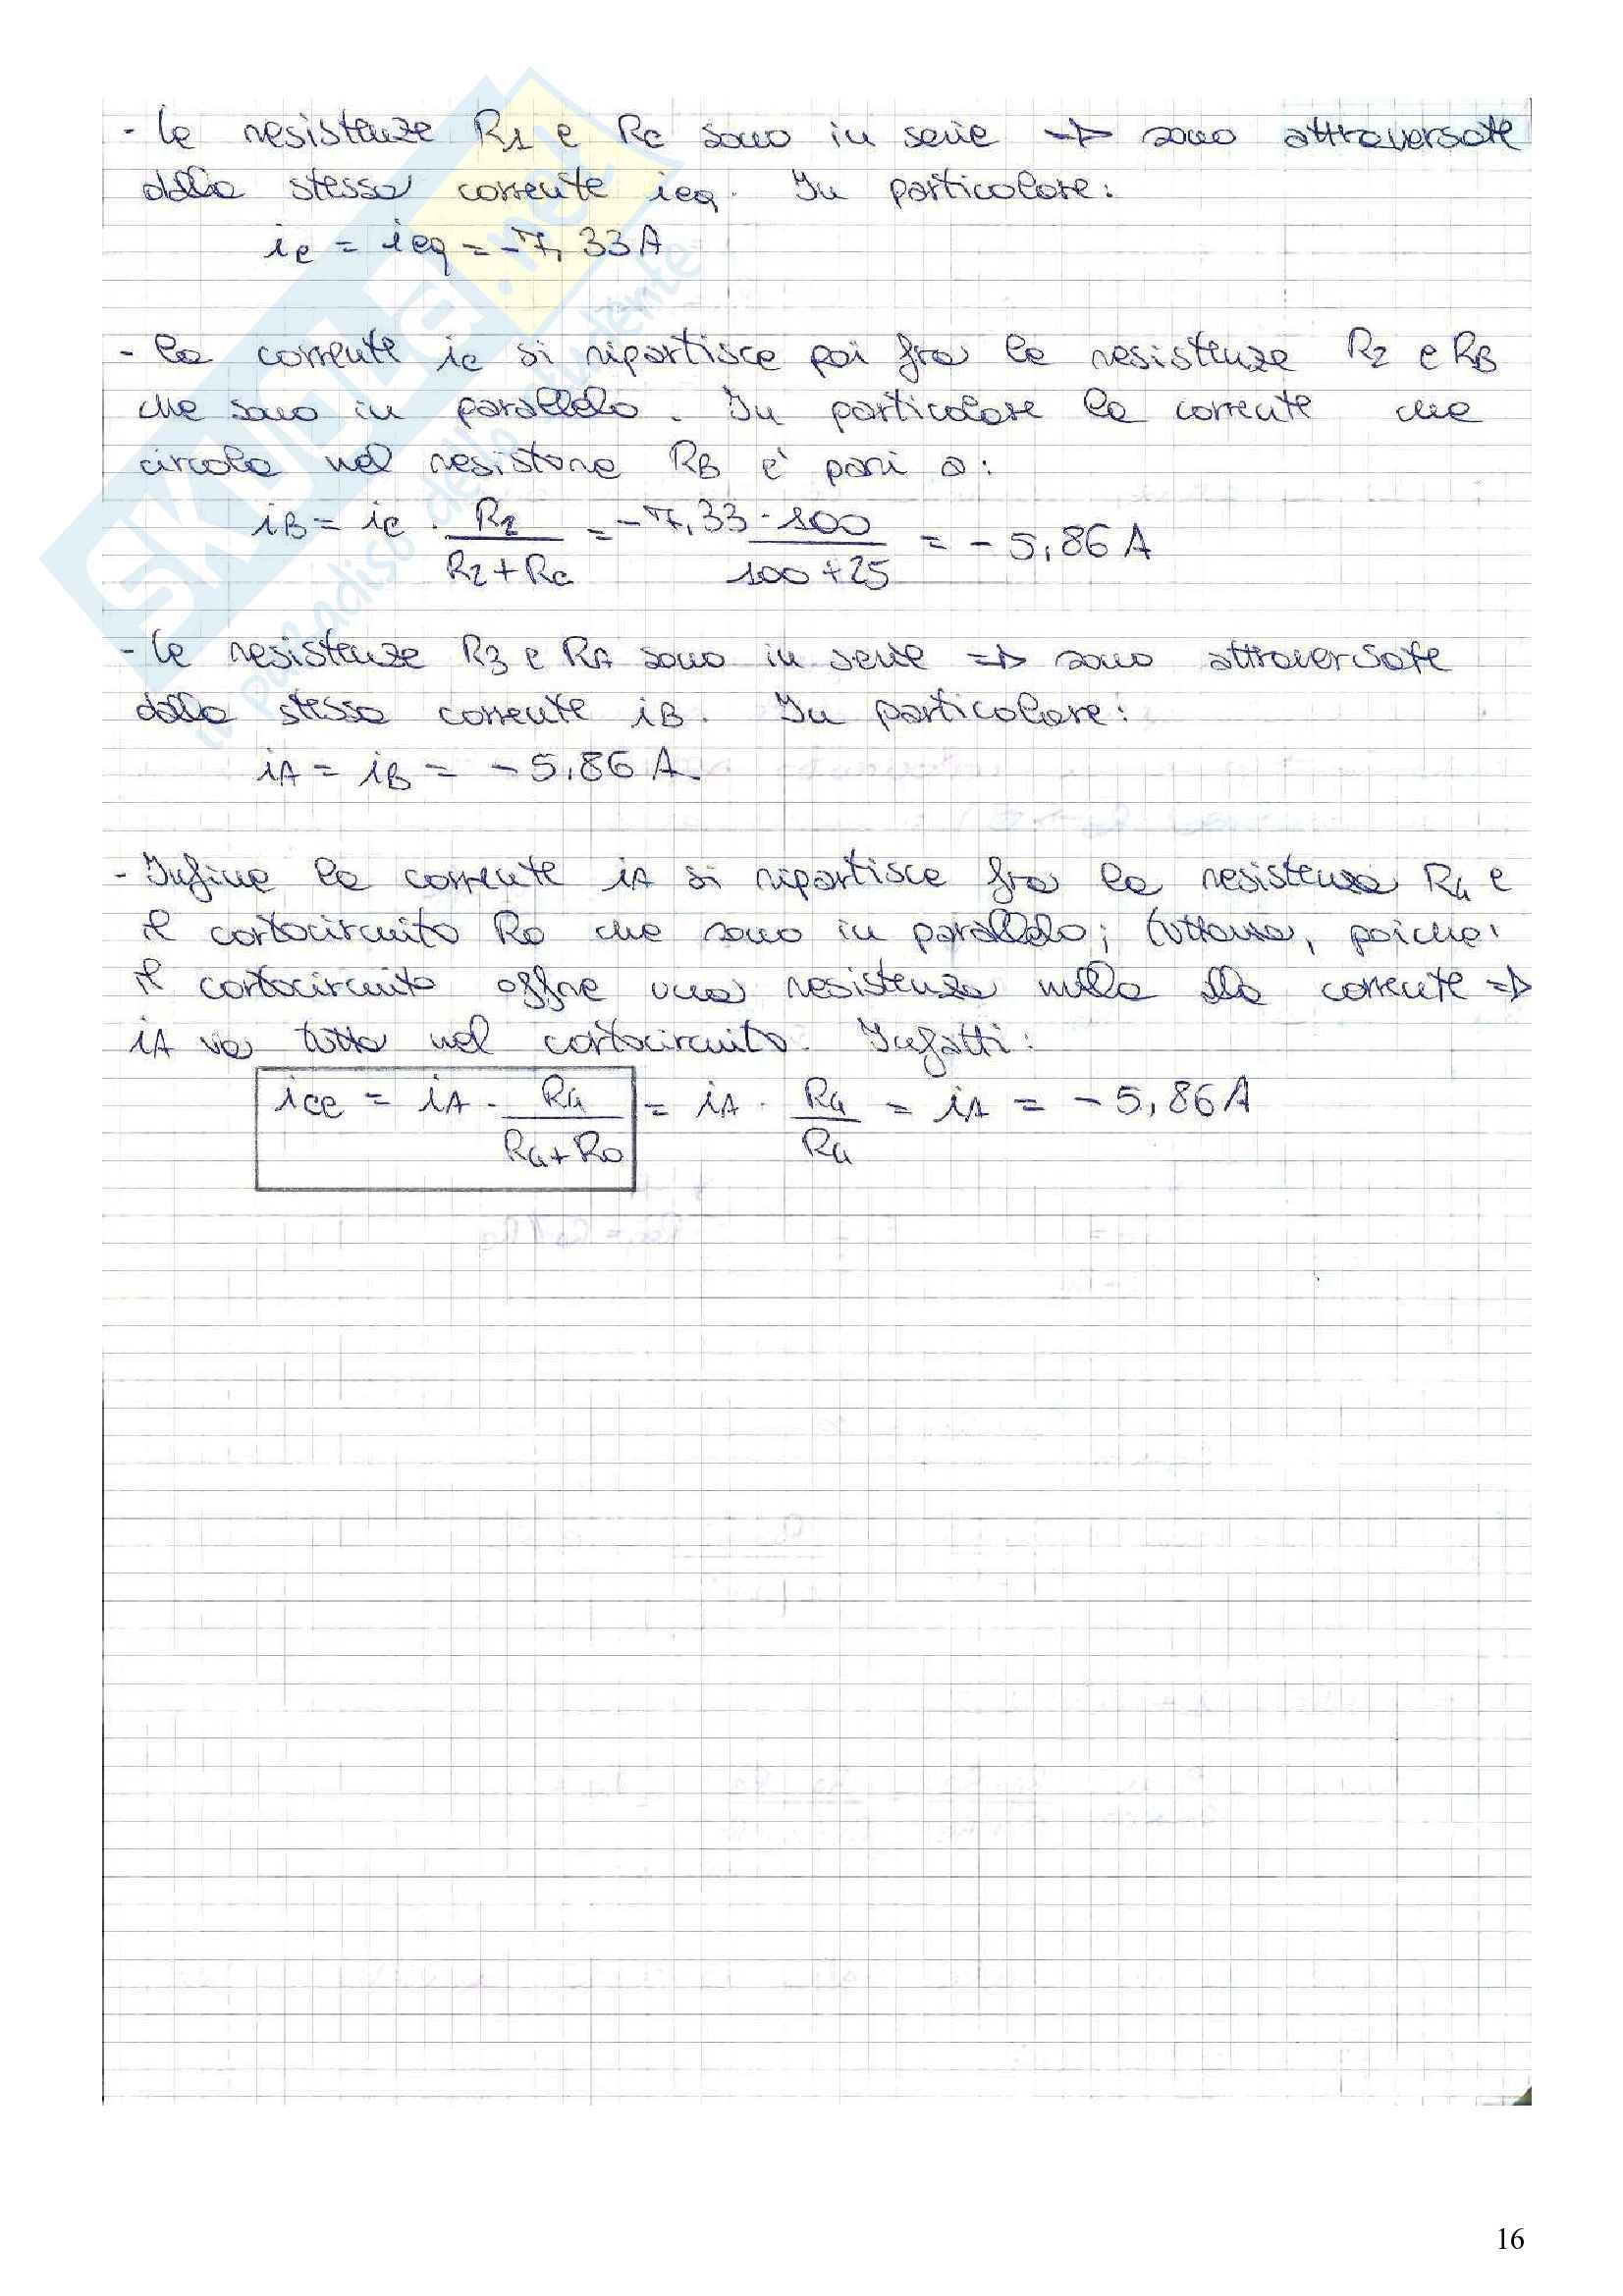 - le resistenze R1 e RC sono in serie => sono attraversate
dalla stessa corrente ieq. In particolare:
iC = ieq = -7,33A
- la corrente iC si ripartisce poi fra le resistenze R2 e RB
che sono in parallelo. In particolare la corrente che
circola nel resistore RB e' pari a:
iB = iC · R2 / (R2 + RC) = -7,33 · 100 / (100 + 25) = - 5,86 A
- le resistenze R3 e RA sono in serie => sono attraversate
dalla stessa corrente iB. In particolare:
iA = iB = - 5,86 A.
- Infine la corrente iA si ripartisce fra la resistenza R4 e
il cortocircuito R0 che sono in parallelo; tuttavia, poiche'
il cortocircuito offre una resistenza nulla alla corrente =>
iA va tutta nel cortocircuito. Infatti:
icc = iA · R4 / (R4 + R0) = iA · R4 / R4 = iA = - 5,86 A
SKUOLA.net
il paradiso dello studente
16